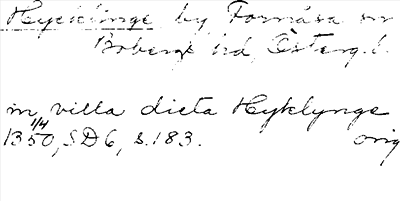 Hycklinge by Fornåsa sn
Bobergs hd, Österg. l.
in villa dicta Hyklynge
1350 1/4, SD 6, s. 183. orig